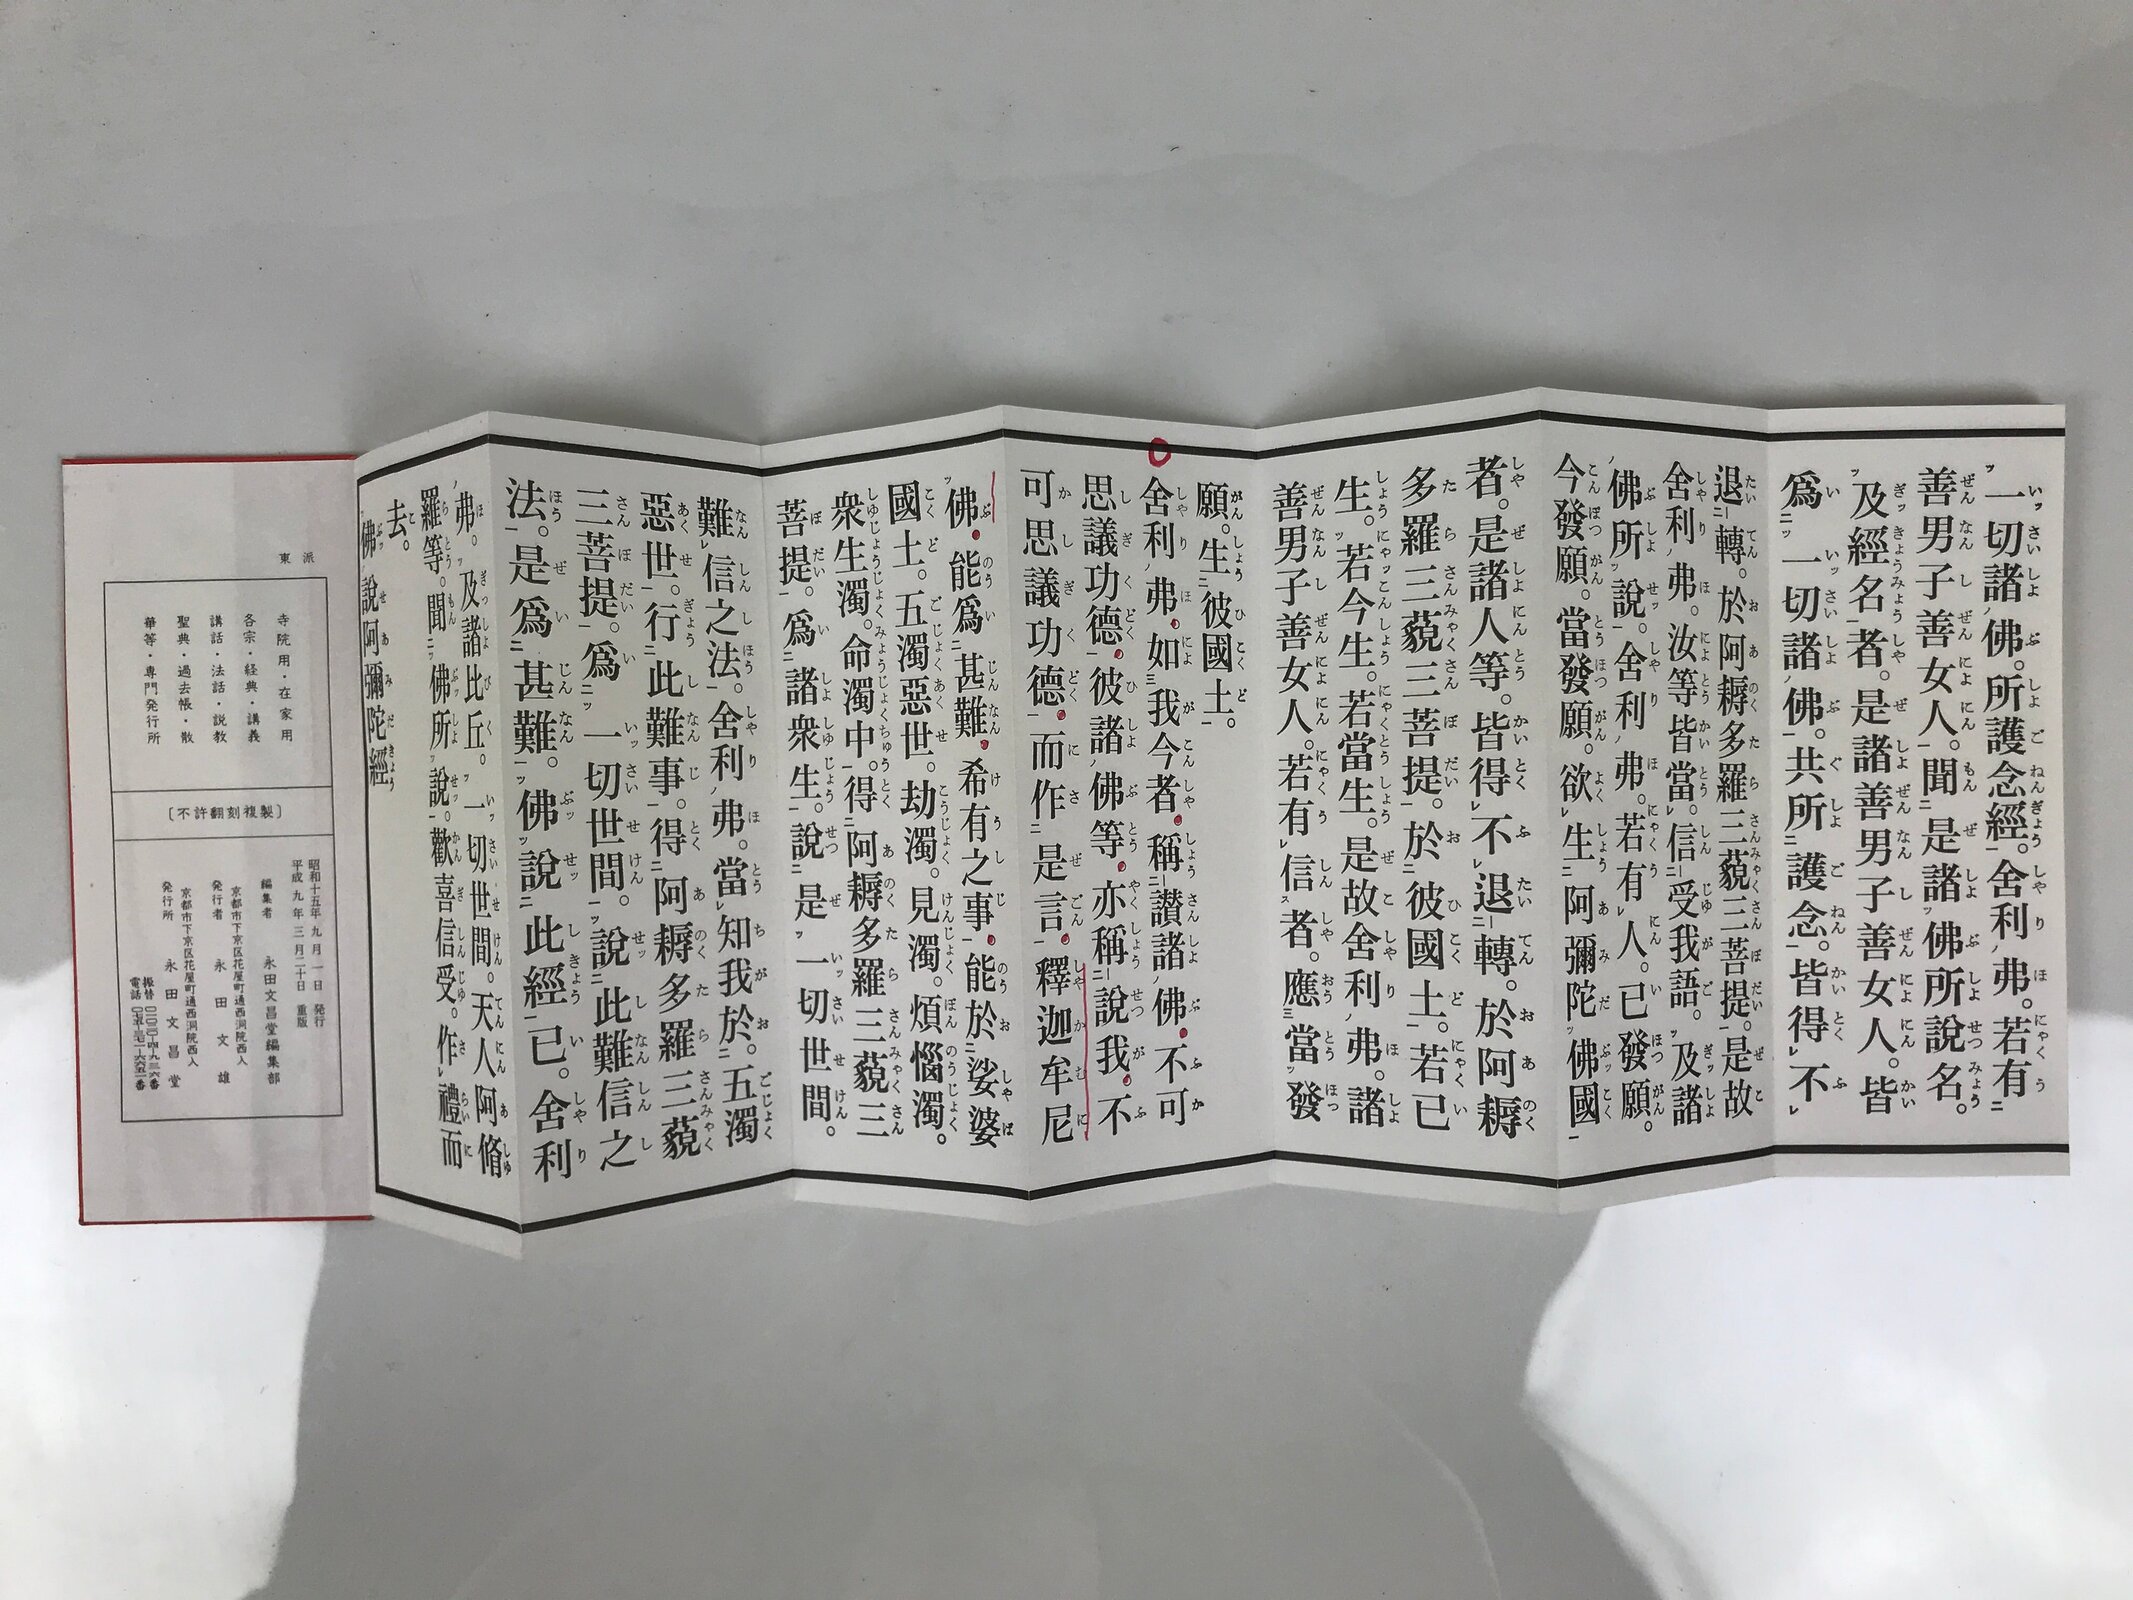 一切諸佛。所護念經。舍利弗。若有
善男子善女人。聞是諸佛所說名。
及經名者。是諸善男子善女人。皆
爲一切諸佛。共所護念。皆得不
退轉。於阿耨多羅三藐三菩提。是故
舍利弗。汝等皆當。信受我語。及諸
佛所說。舍利弗。若有人。已發願。
今發願。當發願。欲生阿彌陀佛國
者。是諸人等。皆得不退轉。於阿耨
多羅三藐三菩提。於彼國土。若已
生。若今生。若當生。是故舍利弗。諸
善男子善女人。若有信者。應當發
願。生彼國土。
舍利弗。如我今者。稱讚諸佛。不可
思議功德。彼諸佛等。亦稱說我。不
可思議功德。而作是言。釋迦牟尼
佛。能爲甚難。希有之事。能於娑婆
國土。五濁惡世。劫濁。見濁。煩惱濁。
衆生濁。命濁中。得阿耨多羅三藐三
菩提。爲諸衆生。說是一切世間。
難信之法。舍利弗。當知我於。五濁
惡世。行此難事。得阿耨多羅三藐
三菩提。爲一切世間。說此難信之
法。是爲甚難。佛說此經已。舍利
弗。及諸比丘。一切世間。天人阿脩
羅等。聞佛所說。歡喜信受。作禮而
去。
佛說阿彌陀經
東派
寺院用・在家用
各宗・経典・講義
講話・法話・説教
聖典・過去帳・散
華等・専門発行所
〔不許翻刻複製〕
昭和十五年九月一日 発行
平成九年三月二十日 重版
編集者 永田文昌堂編集部
京都市下京区花屋町通西洞院西入
発行者 永田文雄
京都市下京区花屋町通西洞院西入
発行所 永田文昌堂